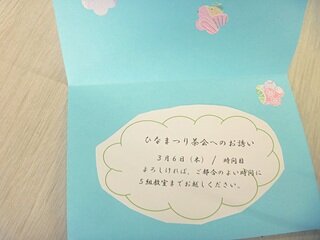 ひなまつり茶会へのお誘い
3月6日（木）/ 時間目
よろしければ、ご都合のよい時間に
5組教室までお越しください。